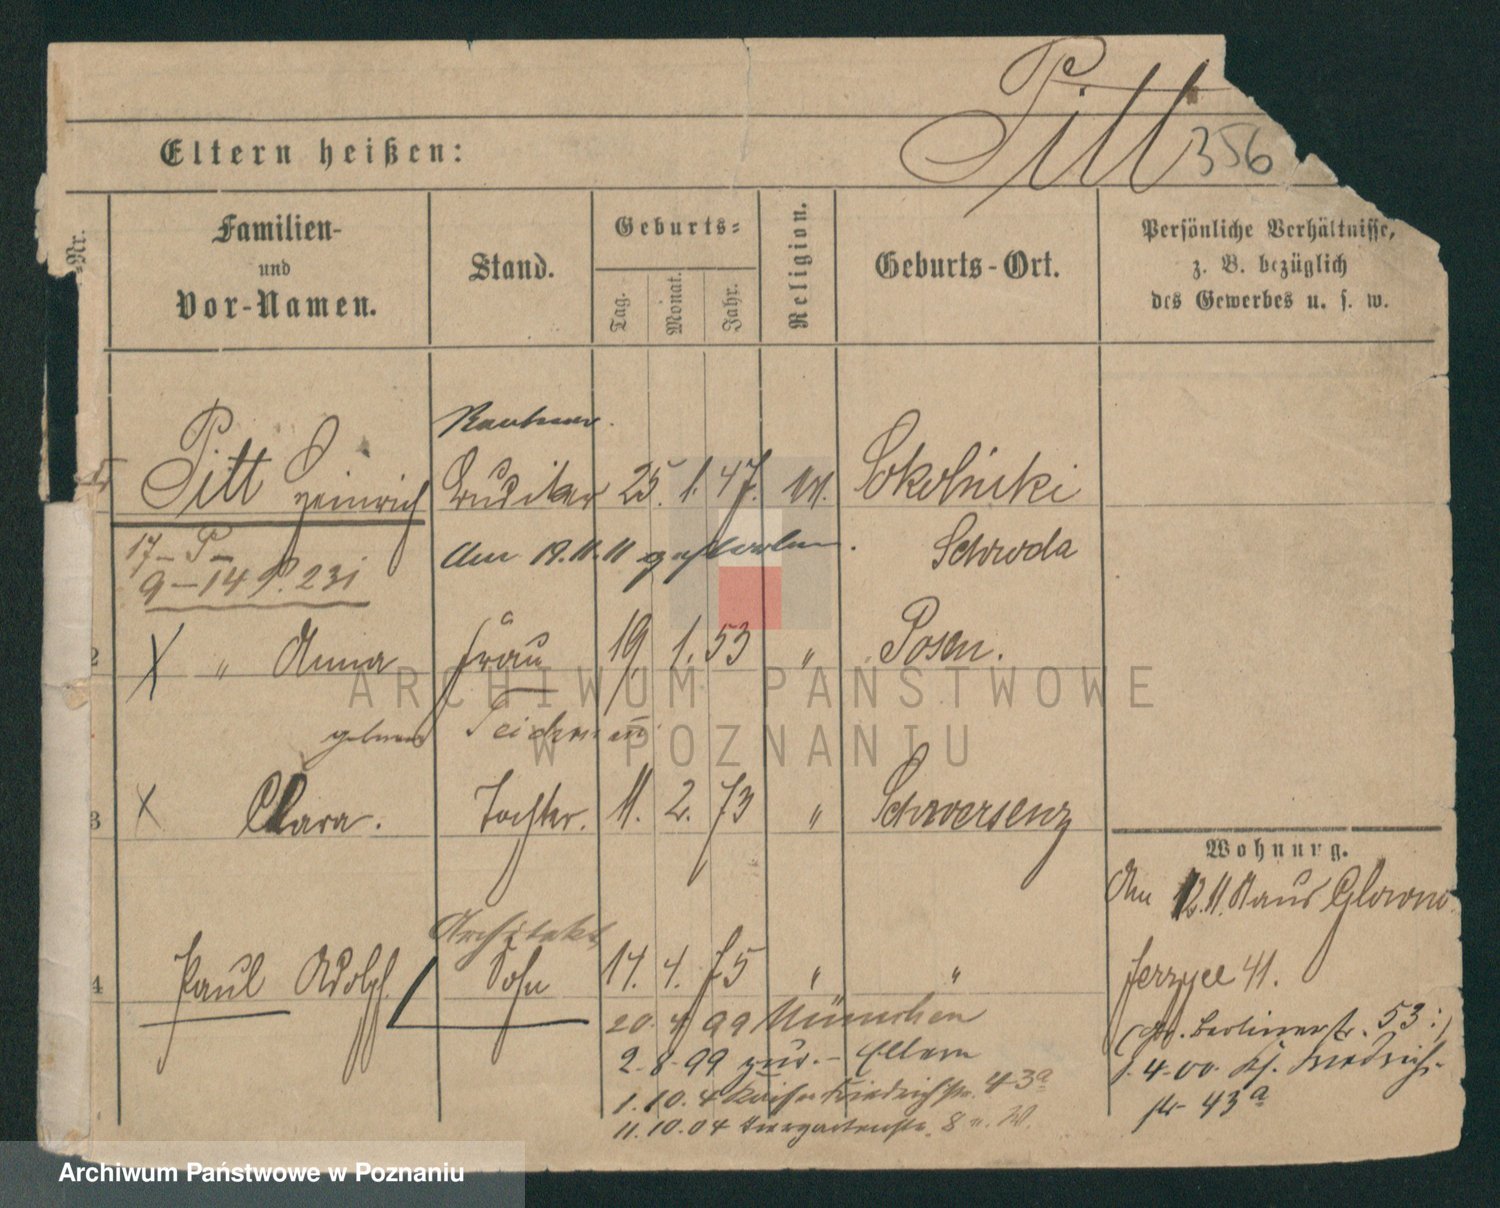 Pitt 356
Eltern heißen:
-Nr.
Familien-
und
Vor-Namen.
Stand.
Geburts-
Tag.
Monat.
Jahr.
Religion.
Geburts-Ort.
Persönliche Verhältnisse,
z. B. bezüglich
des Gewerbes u. s. w.
Rentner.
Pitt Heinrich 25. 1. 47. Sokolniki
17 – P –
Am 19.11.11 gestorben. Schroda
9 – 14 P. 231
2 X " Anna Frau 19. 1. 53 " Posen.
geborene Teichmann
3 X Clara. Tochter. 11. 2. 73 " Schwersenz
Wohnung.
Am 12.11. aus Glowno.
Architekt
4 Paul Adolf. Sohn 14. 4. 75 " "
Jerzyce 41.
20. 4 99 München
(Gr. Berlinerstr. 53:)
2. 8. 99 zur. – Eltern
1. 4. 00. Ks. Friedrich-
1. 10. 4 Kaiser Friedrichstr. 43a
str 43a
11. 10. 04 Tiergartenstr. 8
ARCHIWUM PAŃSTWOWE
W POZNANIU
Archiwum Państwowe w Poznaniu